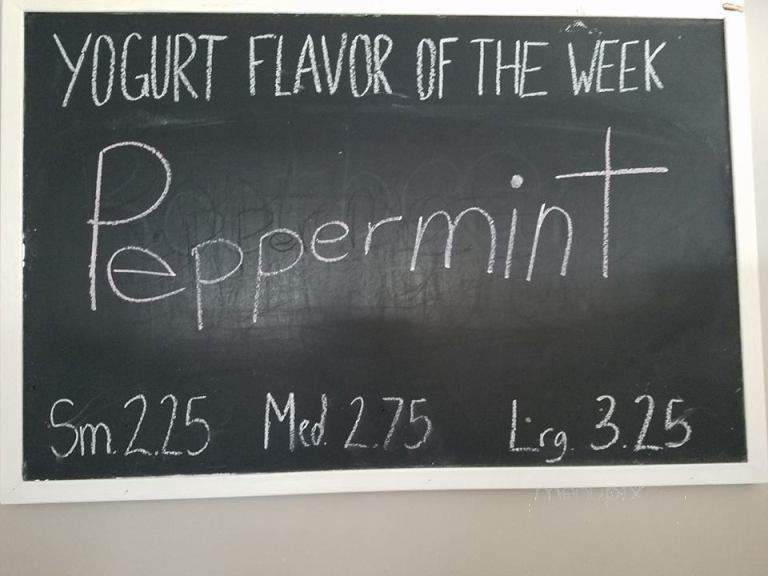 YOGURT FLAVOR OF THE WEEK
Peppermint
Sm. 2.25 Med. 2.75 Lrg. 3.25